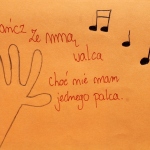 ańcz ze mną
walca
choć nie mam
jednego palca..